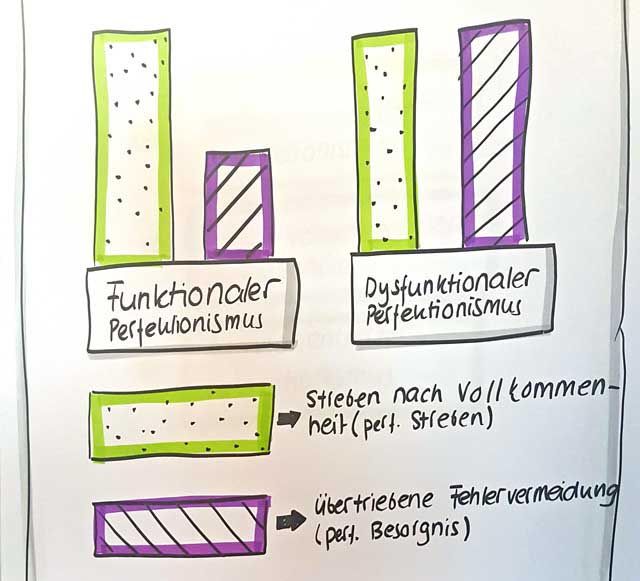 Funktionaler
Perfektionismus
Dysfunktionaler
Perfektionismus
Streben nach Vollkommen-
heit (perf. Streben)
übertriebene Fehlervermeidung
(perf. Besorgnis)